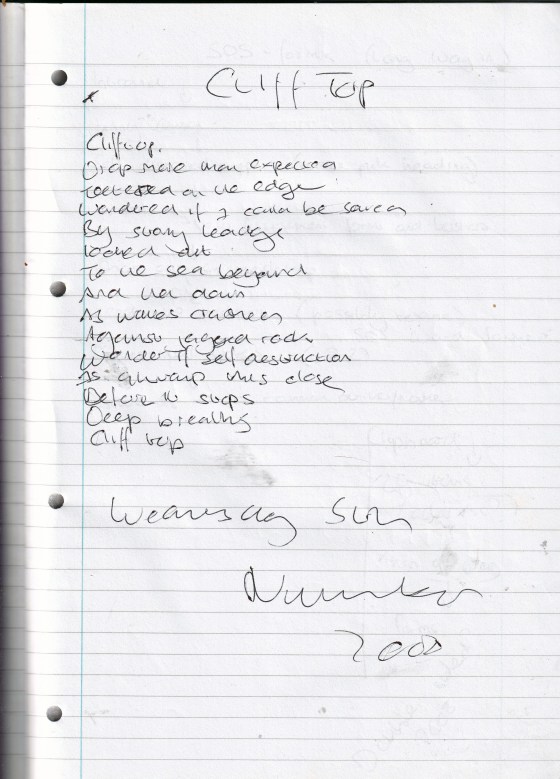 Cliff Top
Cliff top.
Drop more than expected
Teetered on the edge
Wondered if I could be saved
By strong
looked out
To the sea beyond
And then down
As waves crashed
Against jagged rocks
Wonder if self destruction
Is always this close
Before it stops
Deep breathing
Cliff top
Wednesday 5th
November
2000